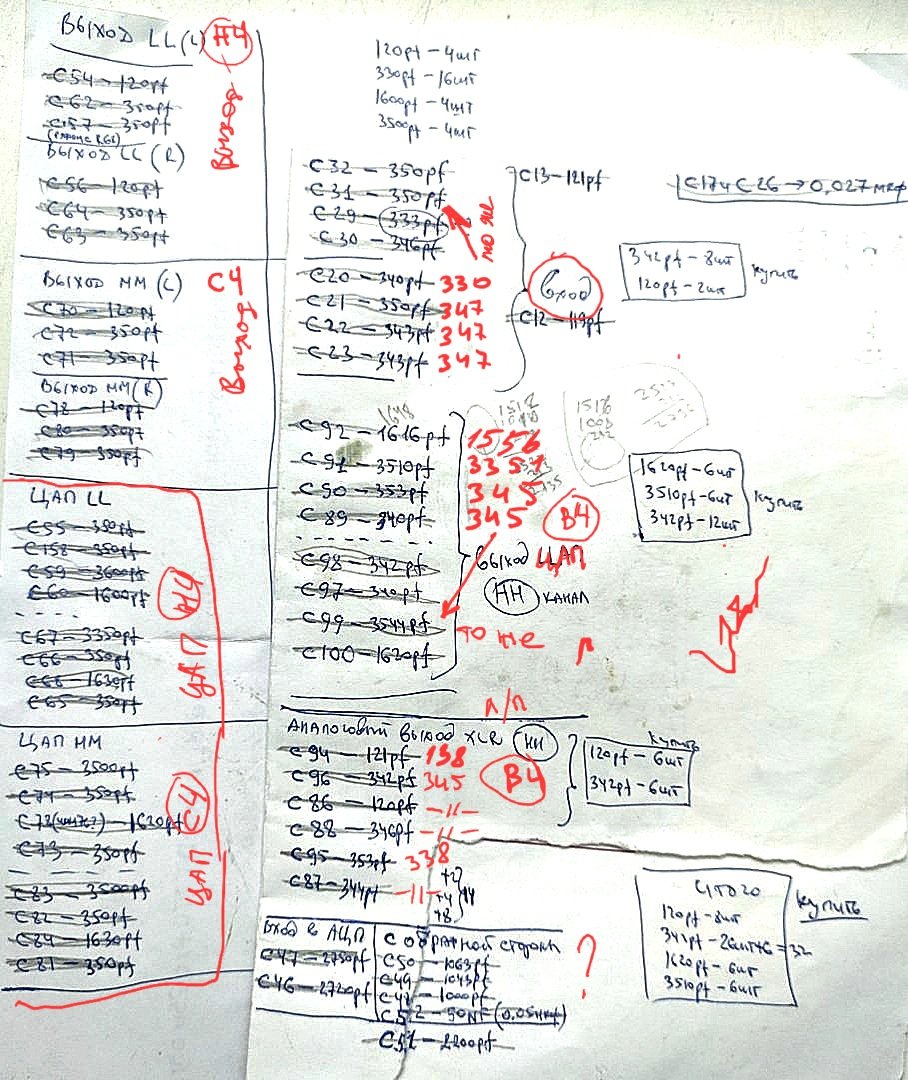 ВЫХОД LL (L) НЧ
Выход
C54 – 120pf
C62 – 350pf
C157 – 350pf
ВЫХОД LL (R)
C56 – 120pf
C64 – 350pf
C63 – 350pf
ВЫХОД MM (L) СЧ
Выход
C70 – 120pf
C72 – 350pf
C71 – 350pf
ВЫХОД MM (R)
C78 – 120pf
C80 – 350pf
C79 – 350pf
ЦАП LL
C55 – 350pf
C158 – 350pf
C59 – 3600pf
C60 – 1600pf
НЧ
ЦАП
C67 – 3350pf
C66 – 350pf
C68 – 1630pf
C65 – 350pf
ЦАП MM
C75 – 3500pf
C74 – 350pf
C73 – 1620pf
СЧ
C73 – 350pf
ЦАП
C83 – 3500pf
C82 – 350pf
C84 – 1630pf
C81 – 350pf
120pf – 4шт
330pf – 16шт
1600pf – 4шт
3500pf – 4шт
C32 – 350pf
C31 – 350pf
C29 – 333pf
C30 – 346pf
то же
C20 – 340pf 330
C21 – 350pf 347
C22 – 343pf 347
C23 – 343pf 347
C13 – 121pf
Вход
C12 – 119pf
C17 и C26 → 0,027 мкф
342pf – 8шт
120pf – 2шт
купить
C92 – 1616pf 1556
C91 – 3510pf 3351
C90 – 353pf 345
C89 – 340pf 345
ВЧ
1518
1003
C98 – 342pf
C97 – 340pf
C99 – 3544pf
C100 – 1620pf
выход ЦАП
НН канал
то же Л
1620pf – 6шт
3510pf – 6шт
342pf – 12шт
купить
Л/П
АНАЛОГОВЫЙ ВЫХОД XLR НН
C94 – 121pf 138
C96 – 342pf 345
C86 – 120pf –//–
C88 – 346pf –//–
C95 – 353pf 338
C87 – 344pf –//–
ВЧ
купить
120pf – 6шт
342pf – 6шт
+2
+4
+8
14
ВХОД в АЦП
C47 – 2750pf
C46 – 2720pf
С ОБРАТНОЙ СТОРОНЫ
C50 – 1063pf
C49 – 1043pf
C48 – 1000pf
C52 – 50NF (0.05мкф)
C51 – 2200pf
?
ИТОГО
120pf – 8шт
342pf – 26шт+6 = 32
1620pf – 6шт
3510pf – 6шт
купить